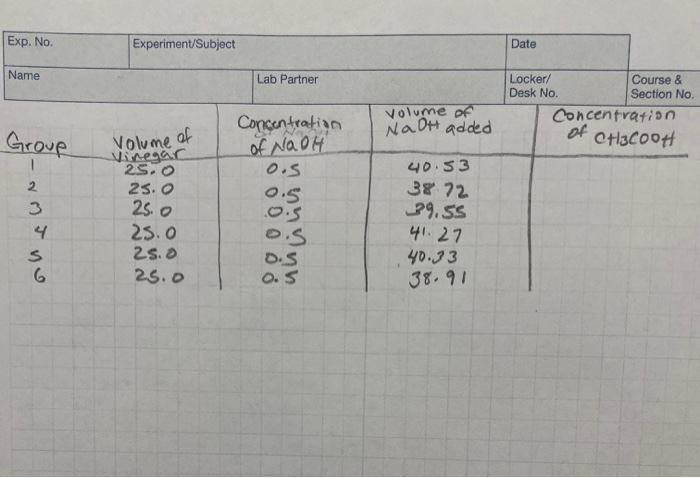 Exp. No. Experiment/Subject Date
Name Lab Partner Locker/ Desk No. Course & Section No.
Group Volume of Vinegar Concentration of NaOH Volume of NaOH added Concentration of CH3COOH
1 25.0 0.5 40.53
2 25.0 0.5 38.72
3 25.0 0.5 39.55
4 25.0 0.5 41.27
5 25.0 0.5 40.33
6 25.0 0.5 38.91